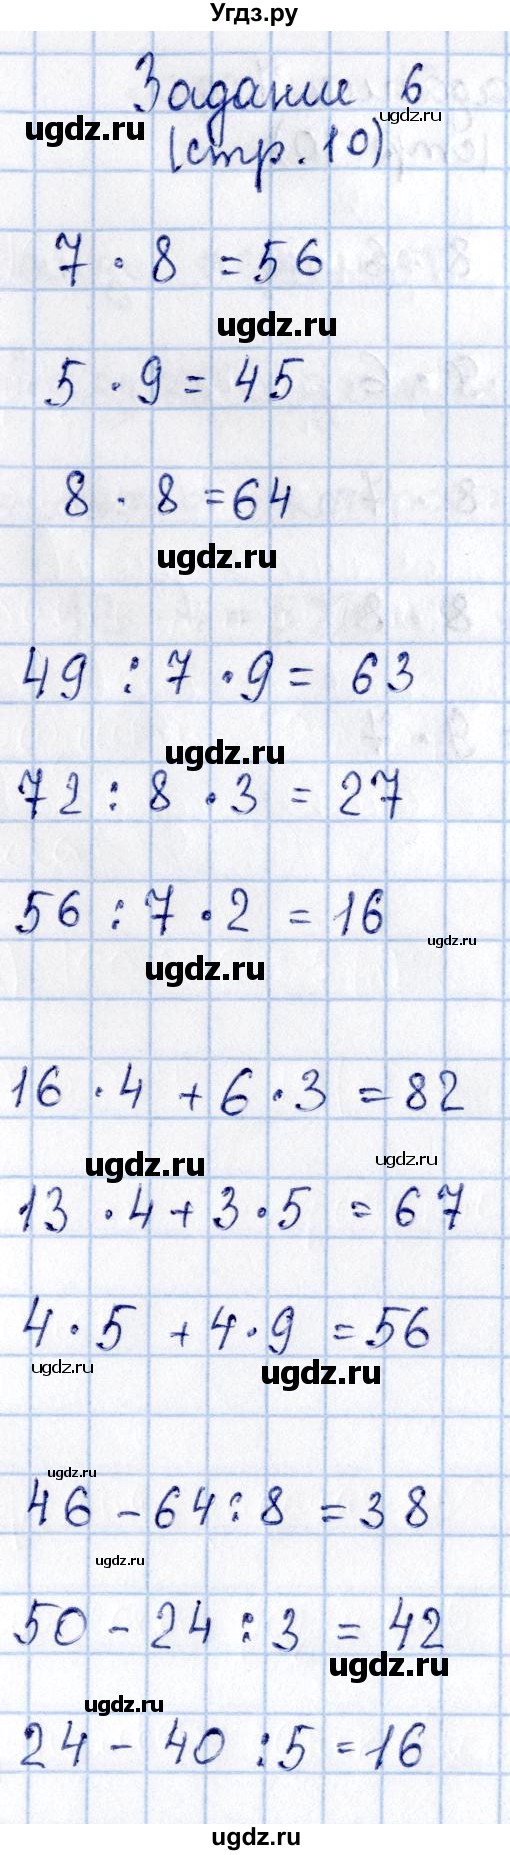 Угдз.ру
Задание 6
ugdz.ru
ugdz.ru
(стр. 10)
7 · 8 = 56
ugdz.ru
5 · 9 = 45
8 · 8 = 64
ugdz.ru
49 : 7 · 9 = 63
ugdz.ru
72 : 8 · 3 = 27
56 : 7 · 2 = 16
ugdz.ru
ugdz.ru
16 · 4 + 6 · 3 = 82
ugdz.ru
ugdz.ru
13 · 4 + 3 · 5 = 67
4 · 5 + 4 · 9 = 56
ugdz.ru
ugdz.ru
ugdz.ru
46 - 64 : 8 = 38
ugdz.ru
50 - 24 : 3 = 42
ugdz.ru
ugdz.ru
24 - 40 : 5 = 16
ugdz.ru